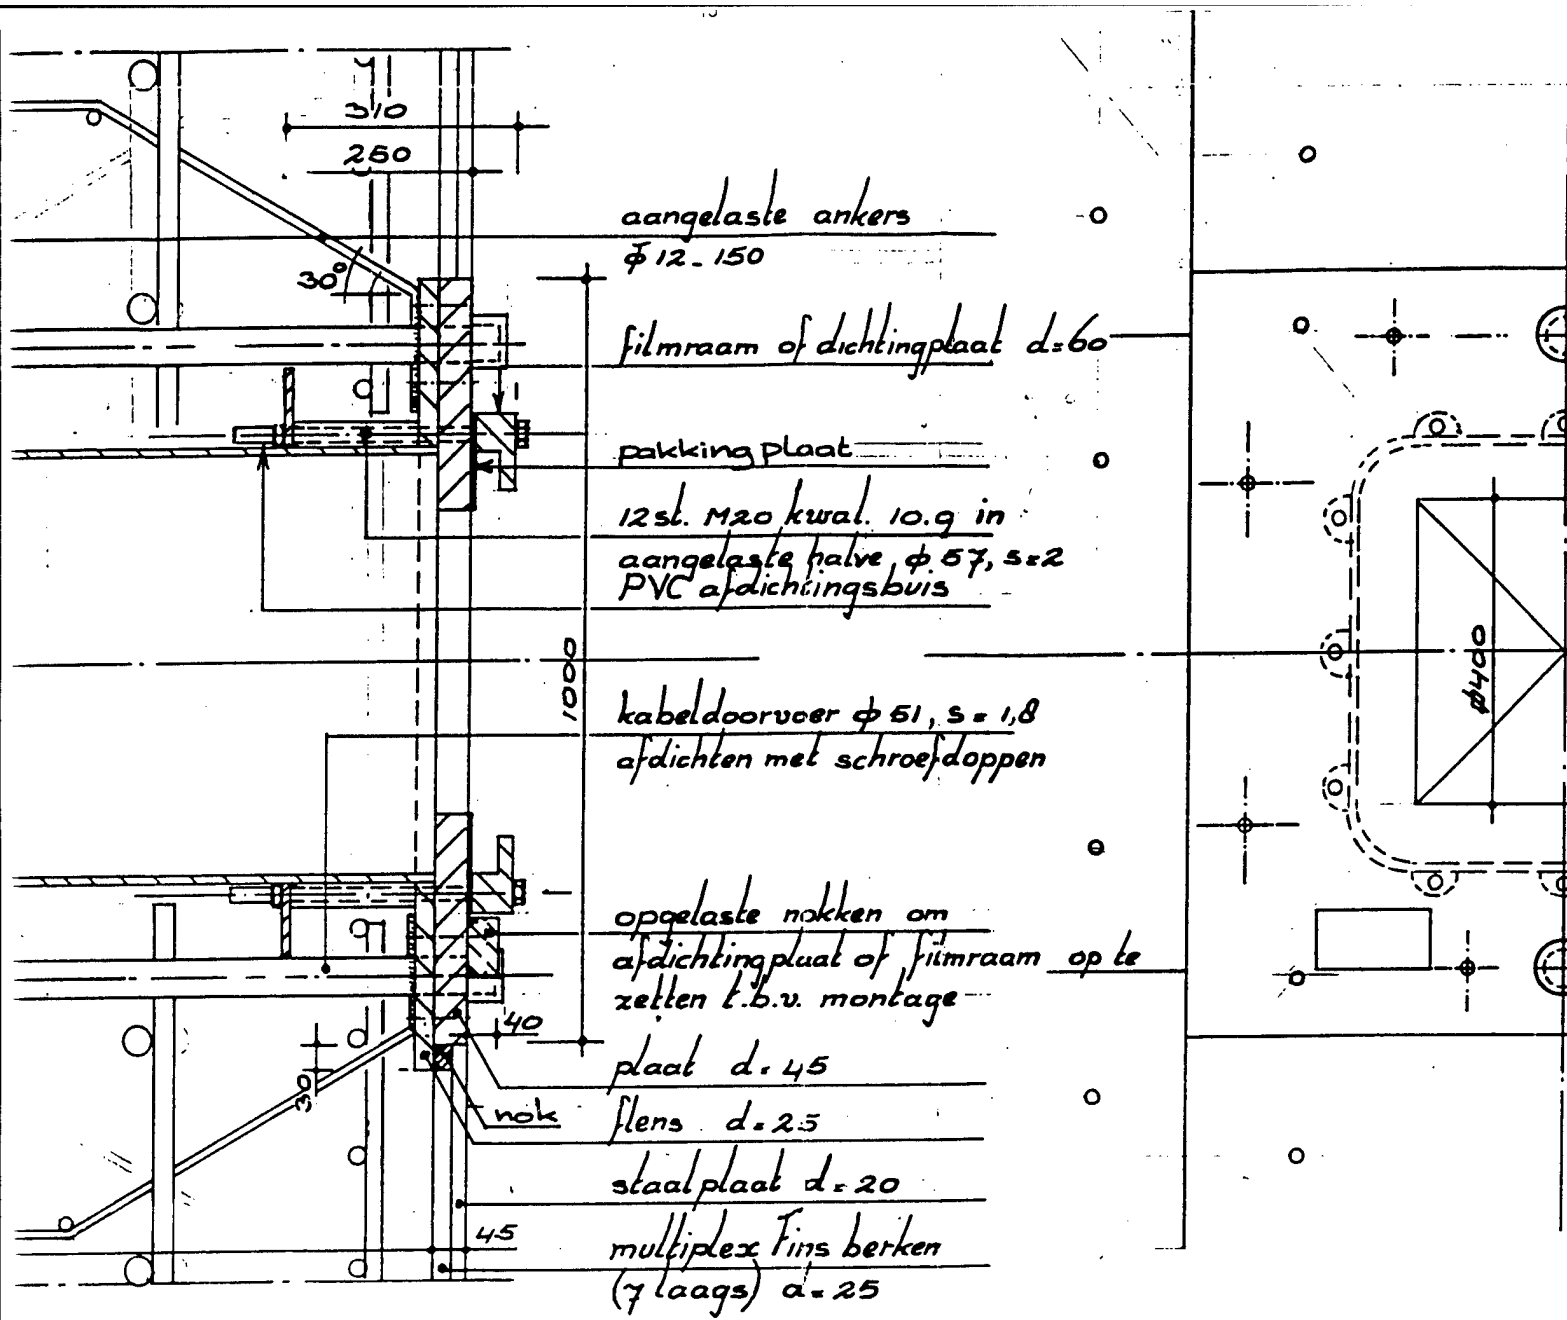 310
250
aangelaste ankers
ϕ 12 - 150
30°
filmraam of dichtingplaat d=60
pakking plaat
12 st. M20 kwal. 10.9 in
aangelaste halve ϕ 57, s=2
PVC afdichtingsbuis
1000
ϕ400
kabeldoorvoer ϕ 51, s = 1,8
afdichten met schroefdoppen
opgelaste nokken om
afdichtingplaat of filmraam op te
zetten t.b.v. montage
40
30
plaat d = 45
nok
flens d = 25
staalplaat d = 20
45
multiplex Fins berken
(7 laags) d = 25